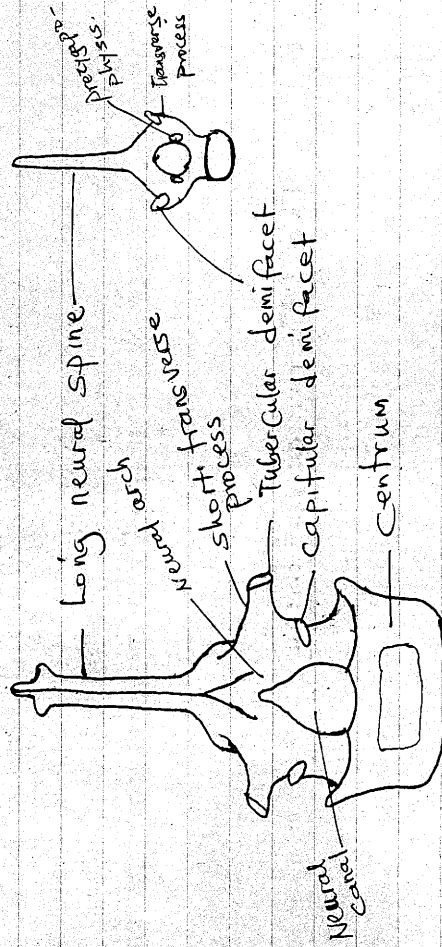 Long neural spine
Neural arch
short transverse
process
Tubercular demifacet
capitular demifacet
Centrum
Neural
canal
prezygapo-
physis.
Transverse
process